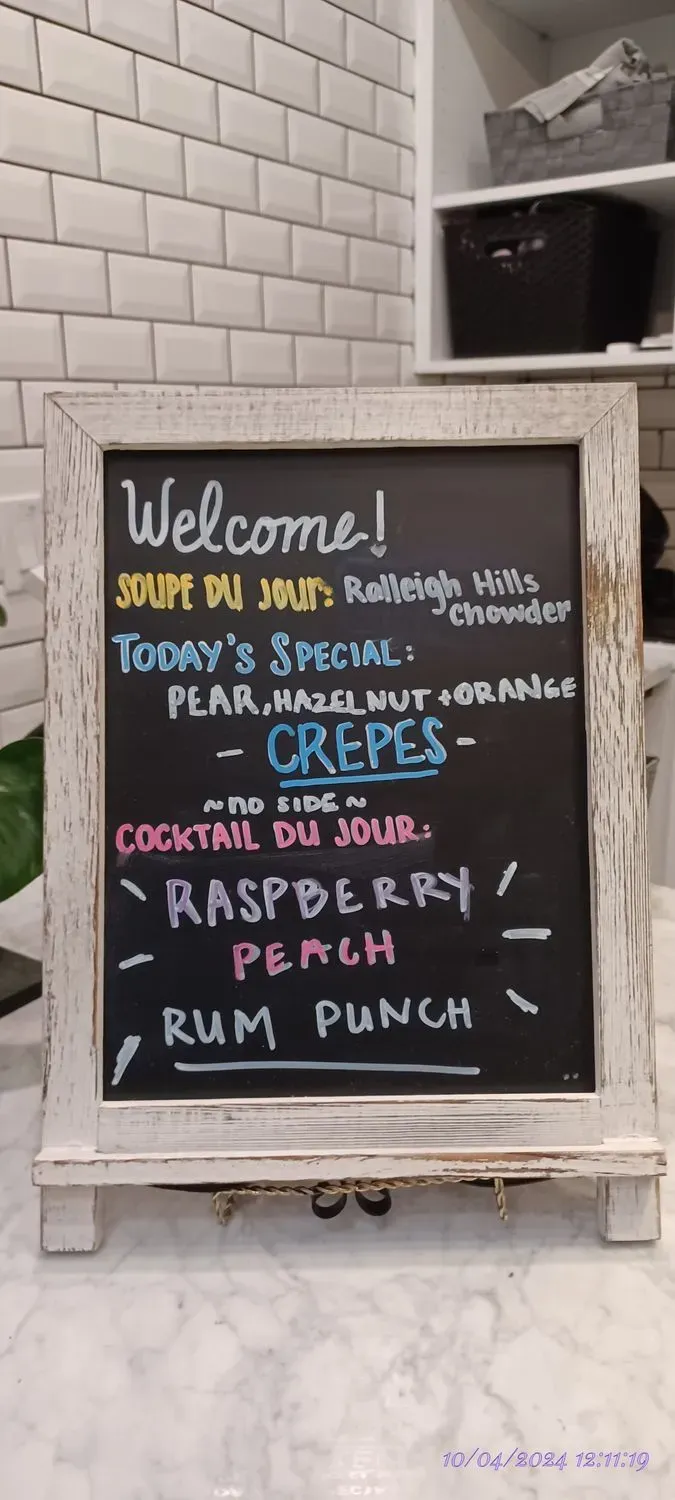 Welcome!
SOUPE DU JOUR: Ralleigh Hills
Chowder
TODAY'S SPECIAL:
PEAR, HAZELNUT + ORANGE
- CREPES -
~ no SIDE ~
COCKTAIL DU JOUR:
RASPBERRY
PEACH
RUM PUNCH
10/04/2024 12:11:19